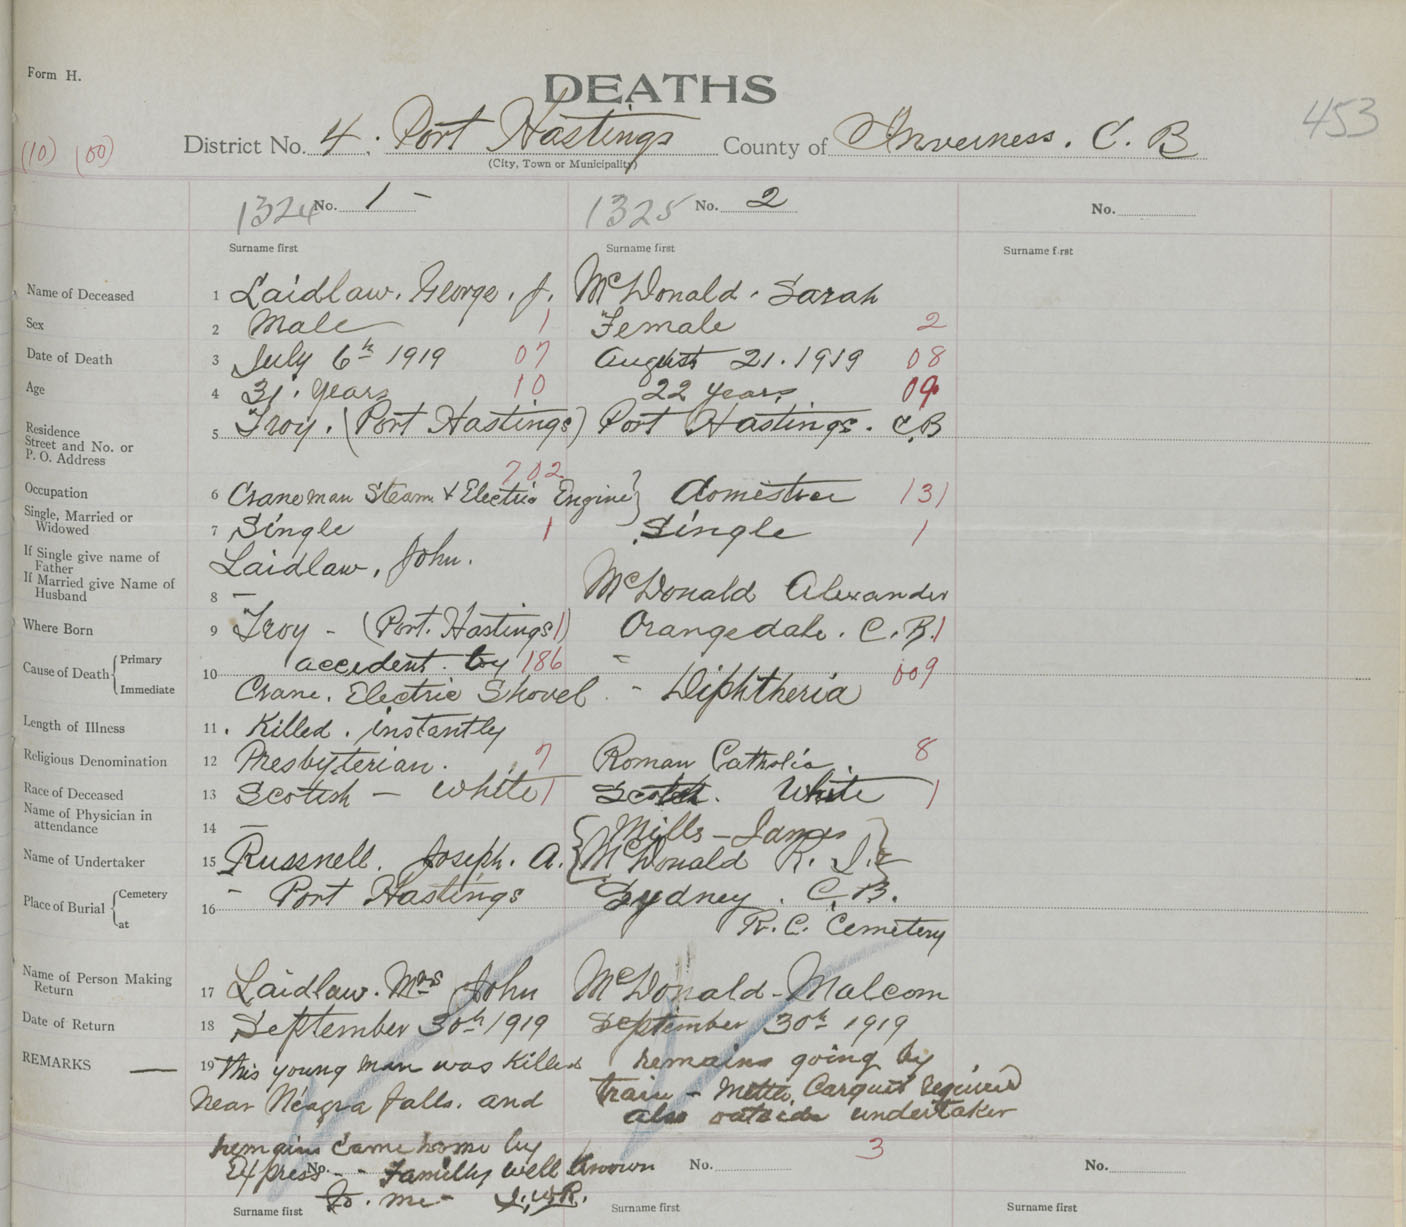 Form H.
DEATHS
453
(10) (00)
District No. 4. Port Hastings County of Inverness. C. B
(City, Town or Municipality)
1324 No. 1 - 1325 No. 2 No.
Surname first Surname first Surname first
Name of Deceased 1 Laidlaw. George. J. McDonald. Sarah
Sex 2 Male 1 Female 2
Date of Death 3 July 6th 1919 07 August 21. 1919 08
Age 4 31. Years 10 22 Years 09
Residence
Street and No. or
P. O. Address
5 Troy. (Port Hastings) Port Hastings. C.B
702
Occupation 6 Craneman Steam & Electric Engine} domestic 131
Single, Married or
Widowed
7 Single 1 Single 1
If Single give name of
Father
Laidlaw, John.
If Married give Name of
Husband
8 - McDonald Alexander
Where Born 9 Troy - (Port. Hastings 1) Orangedale. C. B. 1
Cause of Death { Primary accident. by 186 -
10 009
Immediate Crane. Electric Shovel. - Diphtheria
Length of Illness 11. Killed. instantly
Religious Denomination 12 Presbyterian. 7 Roman Catholic. 8
Race of Deceased 13 Scotish - White 1 Scotch. White 1
Name of Physician in
attendance
14 - {Mills - James}
Name of Undertaker 15 Russnell. Joseph. A. {McDonald R. J. &
Place of Burial { Cemetery
at
16 - Port Hastings Sydney. C. B.
R. C. Cemetery
Name of Person Making
Return
17 Laidlaw. Mrs John McDonald - Malcom
Date of Return 18 September 30th 1919 September 30th 1919
REMARKS — 19 This young man was killed remains going by
Near Niagra falls. and train - Casquet required
also outside undertaker
remains came home by
No. No. 3 No.
Express - - Familly well known
to. me -
Surname first Surname first Surname first